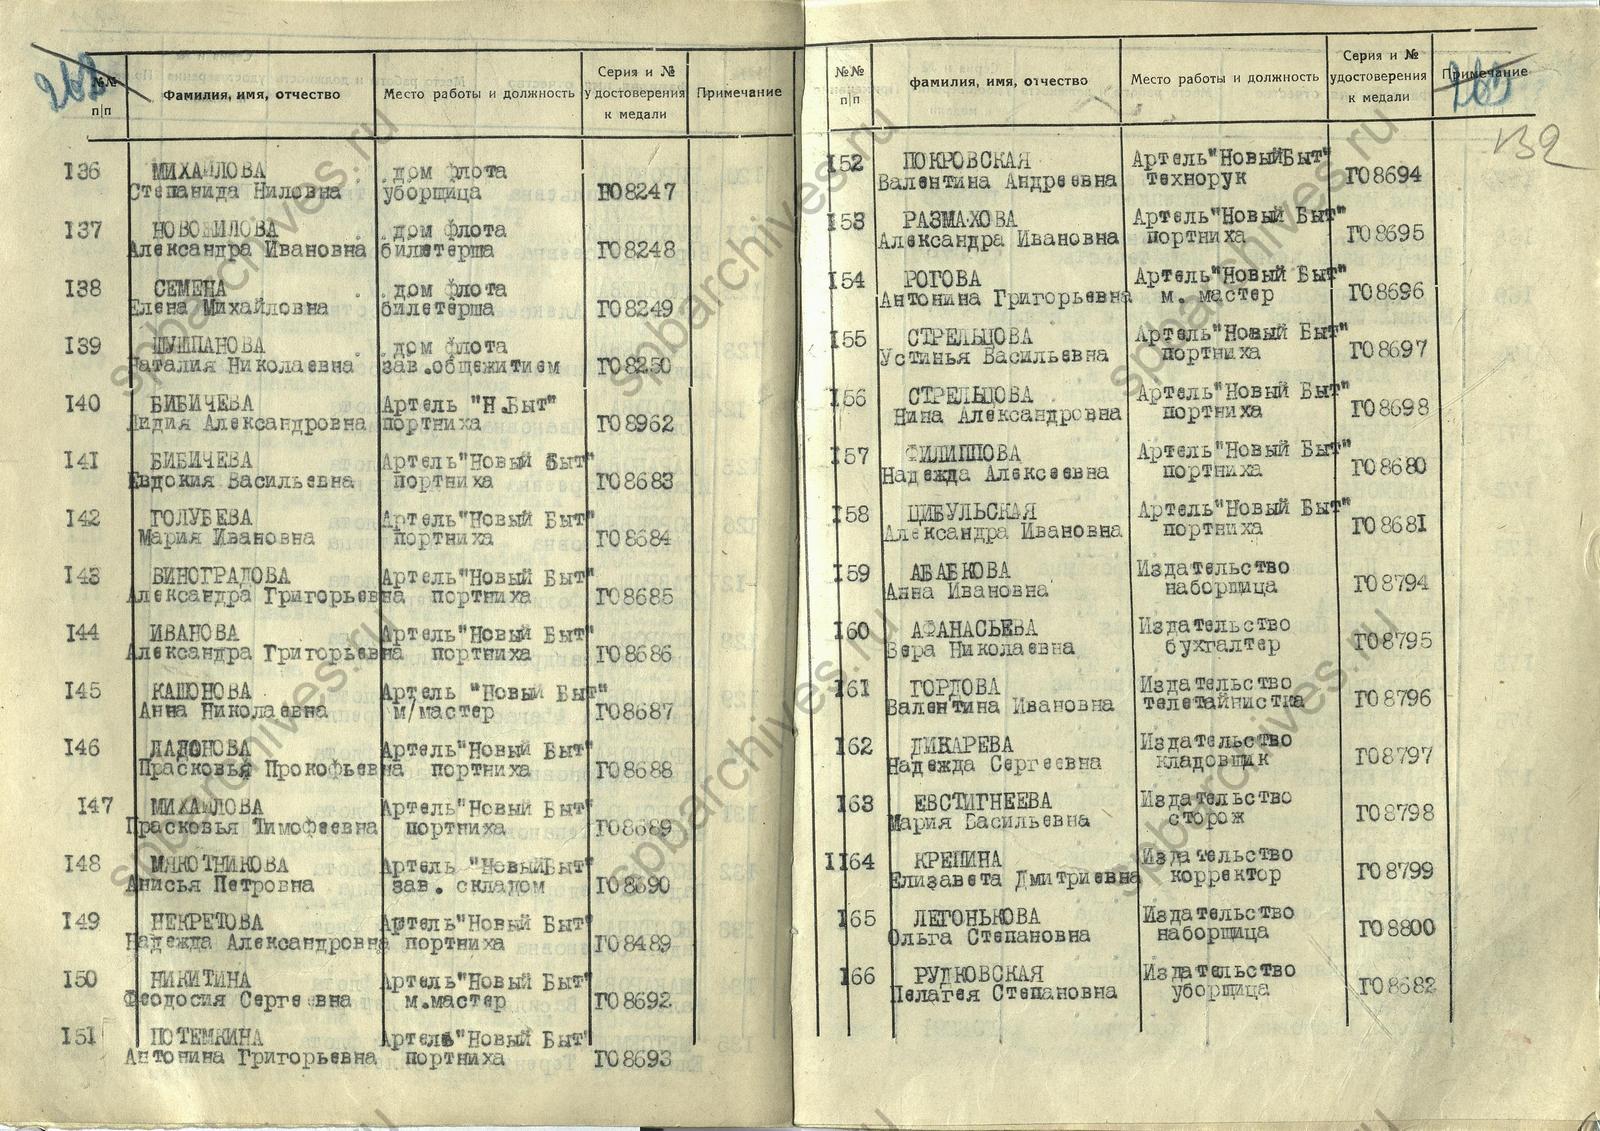 №№ п/п Фамилия, имя, отчество Место работы и должность Серия и № удостоверения к медали Примечание
136 МИХАЙЛОВА дом флота
Степанида Ниловна уборщица ГО8247
137 НОВОЖИЛОВА дом флота
Александра Ивановна билетерша ГО8248
138 СЕМЕНА дом флота
Елена Михайловна билетерша ГО8249
139 ШУШПАНОВА дом флота
Наталия Николаевна зав.общежитием ГО8250
140 БИБИЧЕВА Артель "Н.Быт"
Лидия Александровна портниха ГО8962
141 БИБИЧЕВА Артель"Новый Быт"
Евдокия Васильевна портниха ГО8683
142 ГОЛУБЕВА Артель"Новый Быт"
Мария Ивановна портниха ГО8684
143 ВИНОГРАДОВА Артель"Новый Быт"
Александра Григорьевна портниха ГО8685
144 ИВАНОВА Артель"Новый Быт"
Александра Григорьевна портниха ГО8686
145 КАШОНОВА Артель "Новый Быт"
Анна Николаевна м/мастер ГО8687
146 ЛАДОНОВА Артель"Новый Быт"
Прасковья Прокофьевна портниха ГО8688
147 МИХАЙЛОВА Артель"Новый Быт"
Прасковья Тимофеевна портниха ГО8689
148 МЯКОТНИКОВА Артель "НовыйБыт"
Анисья Петровна зав. складом ГО8690
149 НЕКРЕТОВА Артель"Новый Быт"
Надежда Александровна портниха ГО8489
150 НИКИТИНА Артель"Новый Быт"
Феодосия Сергеевна м.мастер ГО8692
151 ПОТЕМКИНА Артель"Новый Быт"
Антонина Григорьевна портниха ГО8693
№№ п/п фамилия, имя, отчество Место работы и должность Серия и № удостоверения к медали Примечание
132
152 ПОКРОВСКАЯ Артель"НовыйБыт"
Валентина Андреевна технорук ГО8694
153 РАЗМАХОВА Артель"Новый Быт"
Александра Ивановна портниха ГО8695
154 РОГОВА Артель"Новый Быт"
Антонина Григорьевна м. мастер ГО8696
155 СТРЕЛЬЦОВА Артель"Новый Быт"
Устинья Васильевна портниха ГО8697
156 СТРЕЛЬЦОВА Артель"Новый Быт"
Нина Александровна портниха ГО8698
157 ФИЛИППОВА Артель"Новый Быт"
Надежда Алексеевна портниха ГО8680
158 ЦИБУЛЬСКАЯ Артель"Новый Быт"
Александра Ивановна портниха ГО8681
159 АБАБКОВА Издательство
Анна Ивановна наборщица ГО8794
160 АФАНАСЬЕВА Издательство
Вера Николаевна бухгалтер ГО8795
161 ГОРДОВА Издательство
Валентина Ивановна телетайнистка ГО8796
162 ДИКАРЕВА Издательство
Надежда Сергеевна кладовщик ГО8797
163 ЕВСТИГНЕЕВА Издательство
Мария Васильевна сторож ГО8798
1164 КРЕПИНА Издательство
Елизавета Дмитриевна корректор ГО8799
165 ЛЕГОНЬКОВА Издательство
Ольга Степановна наборщица ГО8800
166 РУДКОВСКАЯ Издательство
Пелагея Степановна уборщица ГО8682
spbarchives.ru
spbarchives.ru
spbarchives.ru
spbarchives.ru
spbarchives.ru
spbarchives.ru